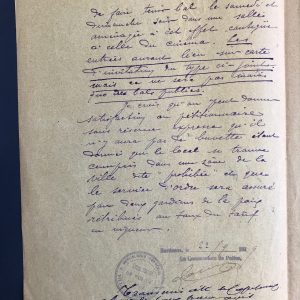 de faire tenir bal le samedi et
dimanche soir dans une salle
aménagée à cet effet, contiguë
à celle du cinéma. Les
entrées auront lieu sur carte
d'invitation du type ci-joint
mais ce ne sera pas
des bals publics.
Je crois qu'on peut donner
satisfaction au pétitionnaire
sous réserve expresse qu'il
n'y aura pas de buvette étant
donné que le local se trouve
compris dans une zône de la
ville dite "prohibée" et que
le service d'ordre sera assuré
par deux gardiens de la paix
rétribués au taux du tarif
en vigueur.
Bordeaux, 22/9
Le Commissaire de Police,